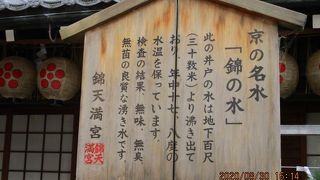 京の名水
「錦の水」
此の井戸の水は地下百尺
(三十数米)より沸き出て
おり、年中十七、八度の
水温を保っています。
検査の結果、無味、無臭、
無菌の良質な湧き水です。
錦天満宮
錦天
満宮
2020/08/30 16:14